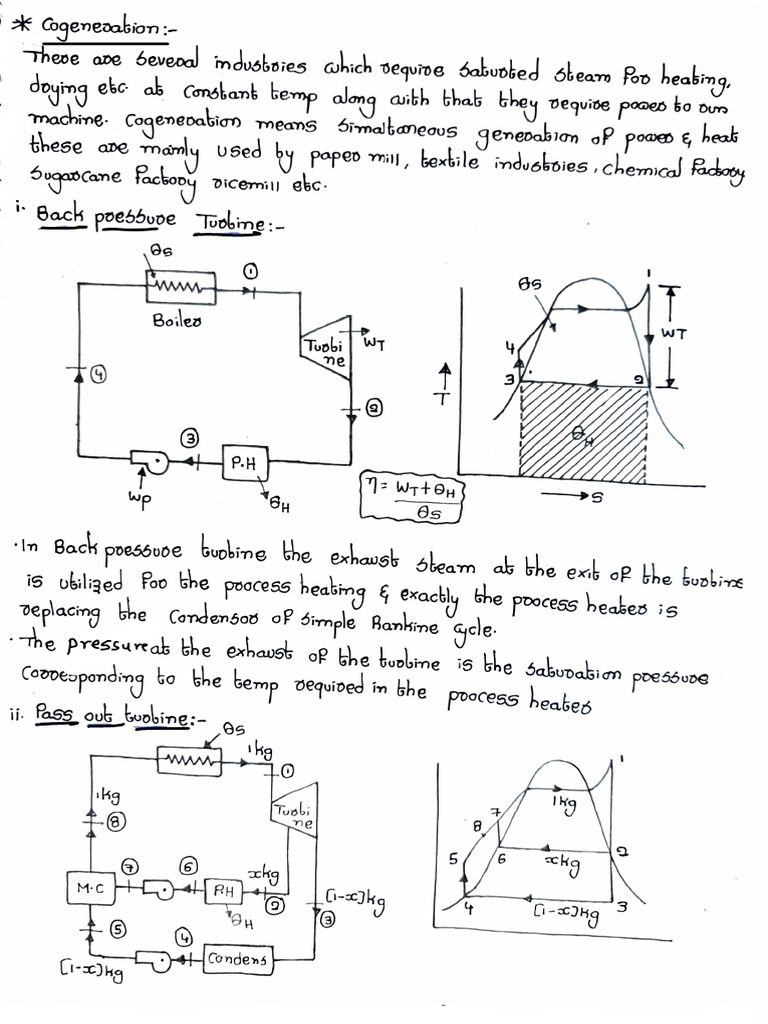 * Cogeneration:-
There are several industries which require saturted steam for heating,
drying etc. at constant temp along with that they require power to run
machine. Cogeneration means simaltaneous generation of power & heat
these are mainly used by paper mill, textile industries, chemical factory
sugarcane factory ricemill etc.
i. Back pressure Turbine:-
QS
①
Boiler
Turbi
ne
WT
④
②
③
P.H
WP
QH
η = WT + QH
QS
QS
1
4
WT
3
2
T
QH
S
·In Back pressure turbine the exhaust steam at the exit of the turbine
is utilized for the process heating & exactly the process heater is
replacing the condensor of simple Rankine cycle.
·The pressure at the exhaust of the turbine is the saturation pressure
corresponding to the temp required in the process heater
ii. Pass out turbine:-
QS
1kg
①
1kg
⑧
Turbi
ne
⑦
⑥
xkg
M.C
P.H
②
QH
[1-x]kg
③
⑤
④
Condens
[1-x]kg
1
1kg
7
8
2
5
6
xkg
4
[1-x]kg
3